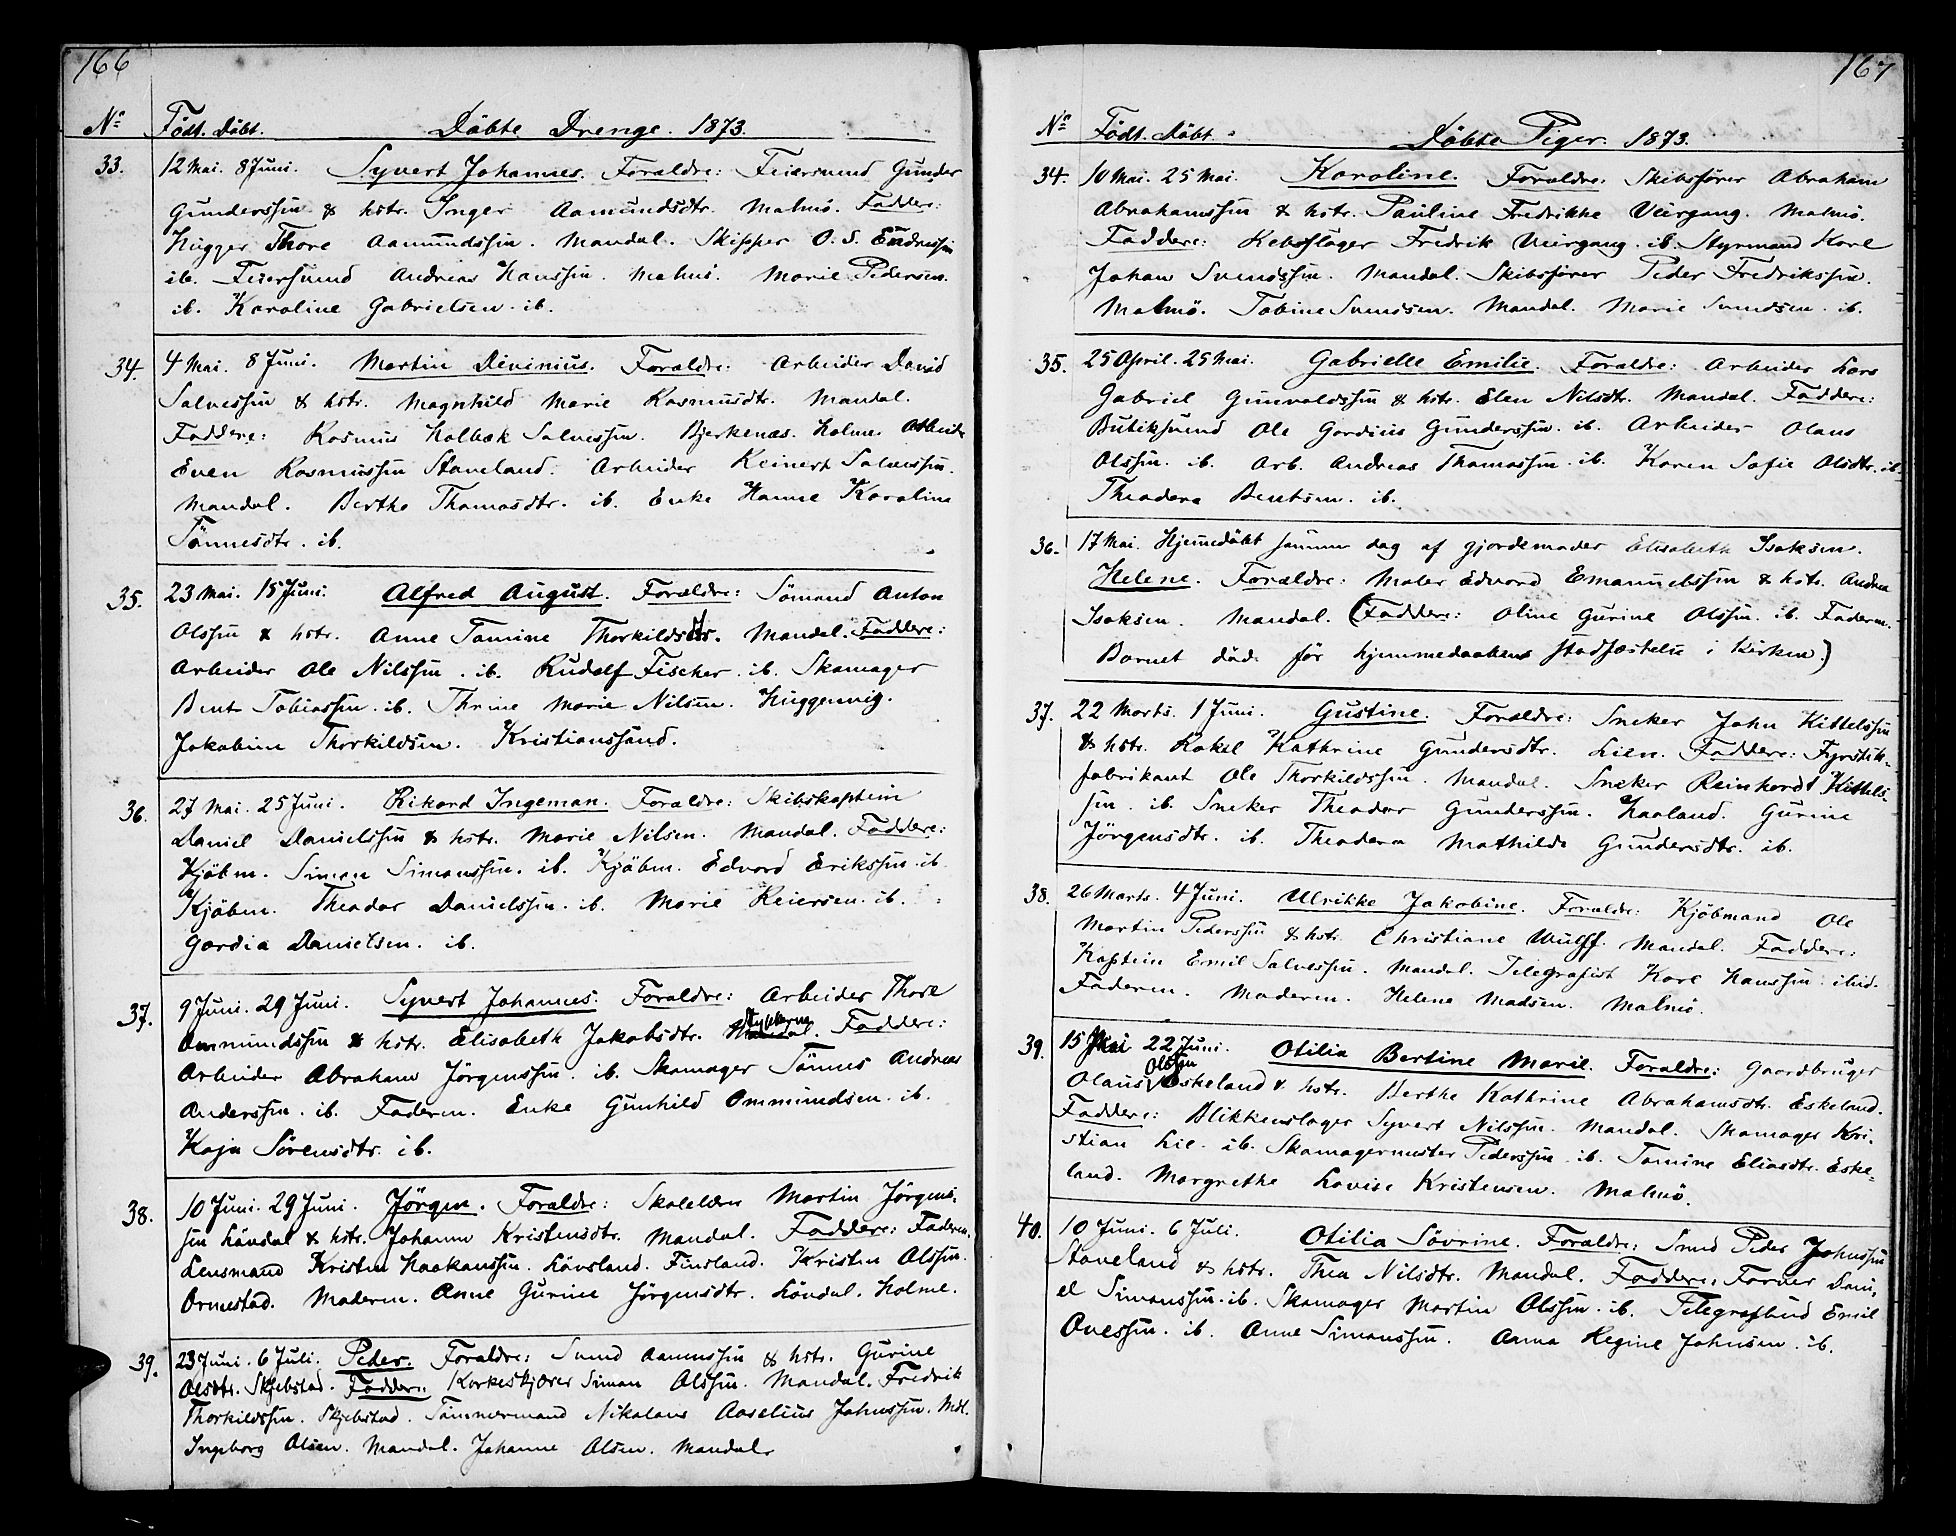 166
No Födt. Döbt. Döbte Drenge. 1873.
33. 12 Mai. 8 Juni. Syvert Johannes. Foraldre: Feiersund Gunder
Gunderssøn & hstr. Inger Aamundsdtr. Malmö. Faddere:
Hugger Thore Aamundssøn. Mandal. Skipper O. S. Endressøn
ib. Feiersund Andreas Hanssøn. Malmö. Marie Pedersen.
ib. Karoline Gabrielsen. ib.
34. 4 Mai. 8 Juni. Martin Divinius. Foraldre: Arbeider David
Salvessøn & hstr. Magnhild Marie Rasmusdtr. Mandal.
Faddere: Rasmus Holbæk Salvessøn. Bjerkenæs. Holme. Arbeider
Even Rasmussøn Staveland. Arbeider Reinert Salvessøn.
Mandal. Berthe Thomasdtr. ib. Enke Hanne Karoline
Tönnesdtr. ib.
35. 23 Mai. 15 Juni. Alfred August. Foraldre: Sömand Anton
Olssøn & hstr. Anne Tomine Thorkildsdtr. Mandal. Faddere:
Arbeider Ole Nilssøn. ib. Rudolf Fischer. ib. Skomager
Bent Tobiassøn. ib. Thrine Marie Nilsen. Huggenvig.
Jakobine Thorkildsen. Kristianssand.
36. 27 Mai. 25 Juni. Rikard Ingeman. Foraldre: Skibskaptein
Daniel Danielssøn & hstr. Marie Nilsen. Mandal. Faddere:
Kjöbm. Simon Simonssøn. ib. Kjöbm. Edvard Erikssøn. ib.
Kjöbm. Theodor Danielssøn. ib. Marie Reiersen. ib.
Gordia Danielsen. ib.
37. 9 Juni. 29 Juni. Syvert Johannes. Foraldre: Arbeider Thore
Ommundssøn & hstr. Elisabeth Jakobsdtr. Mandal. Faddere:
Arbeider Abraham Jörgenssøn. ib. Skomager Tönnes Andreas
Anderssøn. ib. Faderen. Enke Gunhild Ommundsen. ib.
Kaja Sörensdtr. ib.
38. 10 Juni. 29 Juni. Jörgen. Foraldre: Skolelærer Martin Jörgens-
søn Löndal & hstr. Johanne Kristensdtr. Mandal. Faddere: Faderen.
Lensmand Kristen Haakanssøn. Lövsland. Finsland. Kristen Olssøn.
Ormestad. Moderen. Anne Gurine Jörgensdtr. Löndal. Holme.
39. 23 Juni. 6 Juli. Peder. Foraldre: Svend Aanenssøn & hstr. Gurine
Olsdtr. Skjebstad. Faddere: Korkeskjærer Simon Olssøn. Mandal. Fredrik
Thorkildssøn. Skjebstad. Tömmermand Nikolaus Aaselius Johnssøn. Mdl.
Ingeborg Olsen. Mandal. Johanne Olsen. Mandal.
167
No Födt. Döbt. Döbte Piger. 1873.
34. 10 Mai. 25 Mai. Karoline. Foraldre. Skibsförer Abraham
Abrahamssøn & hstr. Pauline Fredrikke Veirgang. Malmö.
Faddere: Rebslager Fredrik Veirgang. ib. Styrmand Karl
Johan Svendssøn. Mandal. Skibsförer Peder Fredrikssøn.
Malmö. Tobine Svendsen. Mandal. Marie Svendsen. ib.
35. 25 April. 25 Mai. Gabrielle Emilie. Foraldre: Arbeider Lars
Gabriel Gunvaldssøn & hstr. Elen Nilsdtr. Mandal. Faddere:
Butiksvend Ole Gordius Gunderssøn. ib. Arbeider Olaus
Olssøn. ib. Arb. Andreas Thomassøn. ib. Karen Sofie Olsdtr. ib.
Theodera Bentsen. ib.
36. 17 Mai. Hjemmedöbt samme dag af gjordemoder Elisabeth Isaksen.
Helene. Foraldre: Maler Edvard Emanuelssøn & hstr. Andrea
Isaksen. Mandal. (Faddere: Oline Gurine Olssøn. ib. Faderen.
Barnet död för hjemmedaabens stadfæstelse i Kirken.)
37. 22 Marts. 1 Juni. Gustine. Foraldre: Sneker John Kittelssøn
& hstr. Rakel Kathrine Gundersdtr. Lien. Faddere: Fyrstik-
fabrikant Ole Thorkildssøn. Mandal. Sneker Reinhardt Kittels-
søn. ib. Sneker Theodor Gunderssøn. Haaland. Gurine
Jörgensdtr. ib. Theodera Mathilde Gundersdtr. ib.
38. 26 Marts. 4 Juni. Ulrikke Jakobine. Foraldre: Kjöbmand Ole
Martin Pederssøn & hstr. Christiane Wulff. Mandal. Faddere:
Kaptein Emil Salvessøn. Mandal. Telegrafist Karl Hanssøn. ibid.
Faderen. Moderen. Helene Madsen. Malmö.
39. 15 Mai 22 Juni. Otilia Bertine Marie. Foraldre: Gaardbruger
Olaus Olssøn Eskeland & hstr. Berthe Kathrine Abrahamsdtr. Eskeland.
Faddere: Blikkenslager Syvert Nilssøn. Mandal. Skomager Kri-
stian Lie. ib. Skomagermester Pederssøn. ib. Tomine Eliasdtr. Eske-
land. Margrethe Lovise Kristensen. Malmö.
40. 10 Juni. 6 Juli. Otilia Sövrine. Foraldre: Smed Peder Johnssøn
Staveland & hstr. Thea Nilsdtr. Mandal. Faddere: Farver Dani-
el Simonssøn. ib. Skomager Martin Olssøn. ib. Telegrafbud Emil
Ovessøn. ib. Anne Simonssøn. Anna Regine Johnsen. ib.